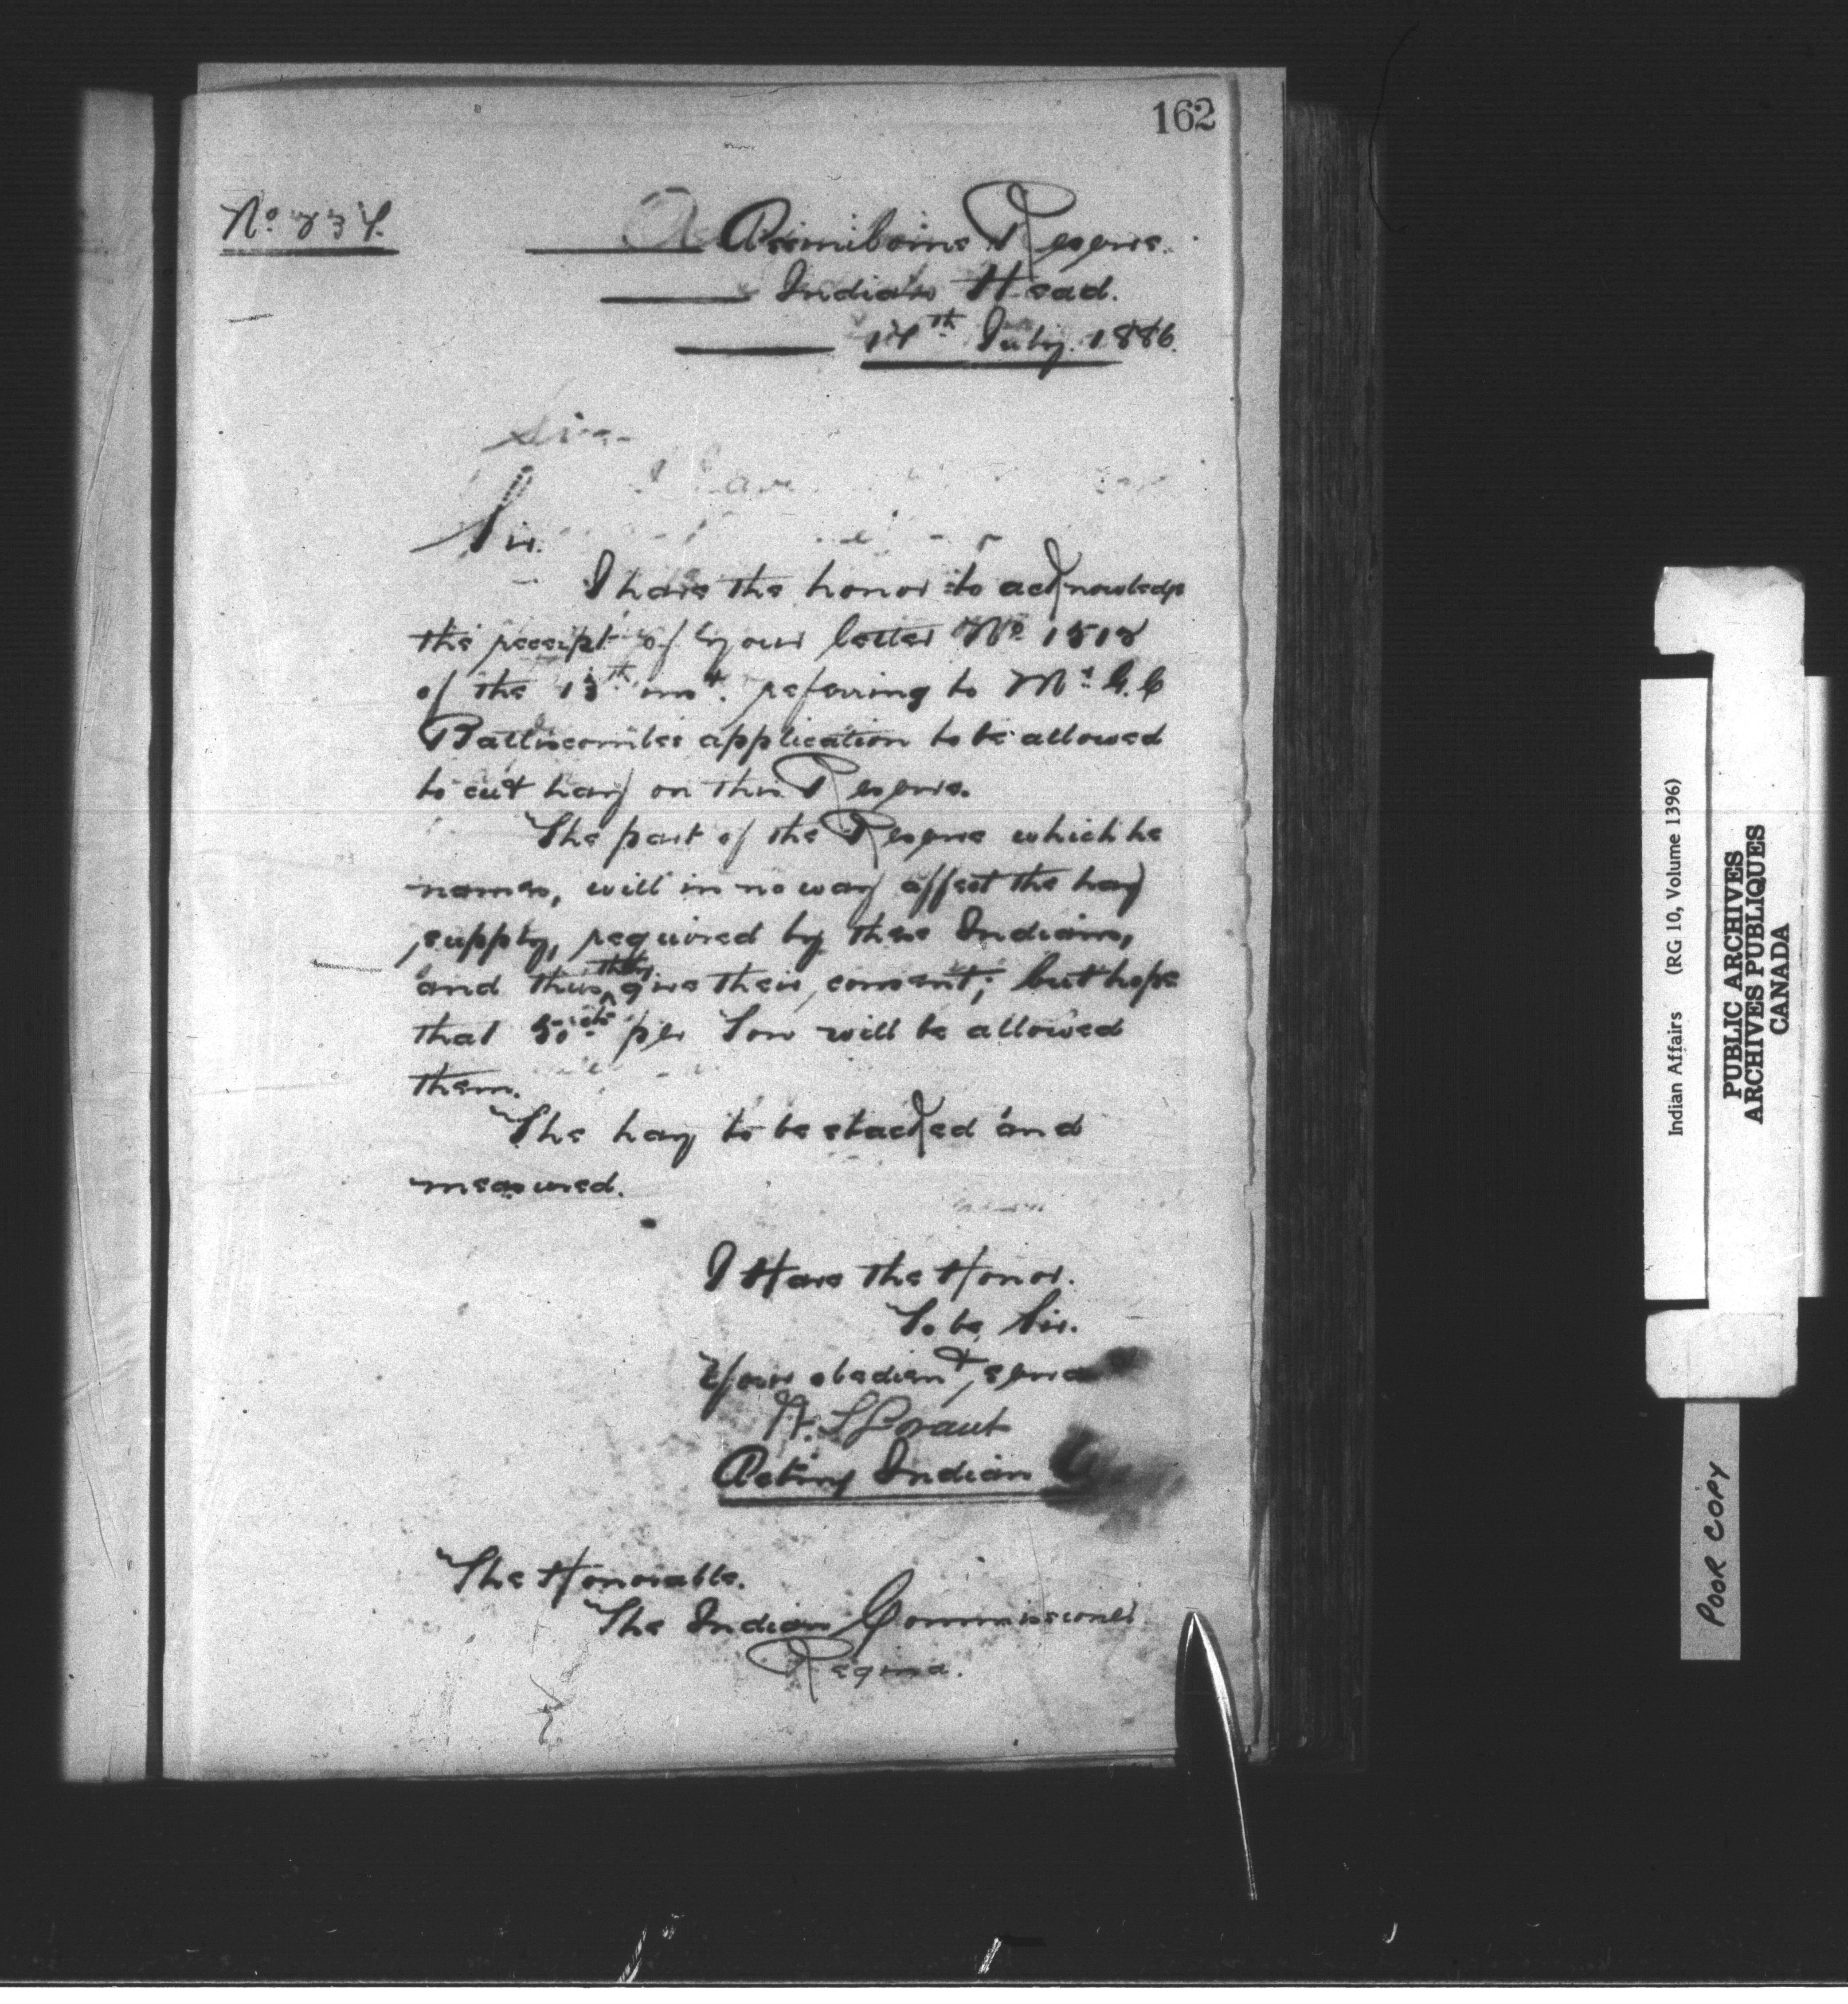 162
No. 234.
Assiniboine Reserve.
Indian Head.
14th July. 1886.
Sir.
I have the honor to acknowledge
the receipt of your letter No
of the 13th inst. referring to Mr. G. C
Battiscombes application to be allowed
to cut hay on this Reserve.
The part of the Reserve which he
names, will in no way affect the hay
supply, required by these Indians,
and thus they give their consent; but hope
that 50 cts per Ton will be allowed
them.
The hay to be stacked and
measured.
I Have the Honor.
To be, Sir.
Your obedient,
W. S. Grant
Acting Indian
The Honorable.
The Indian Commissioner
Regina.
Indian Affairs (RG 10, Volume 1396)
PUBLIC ARCHIVES
ARCHIVES PUBLIQUES
CANADA
POOR COPY